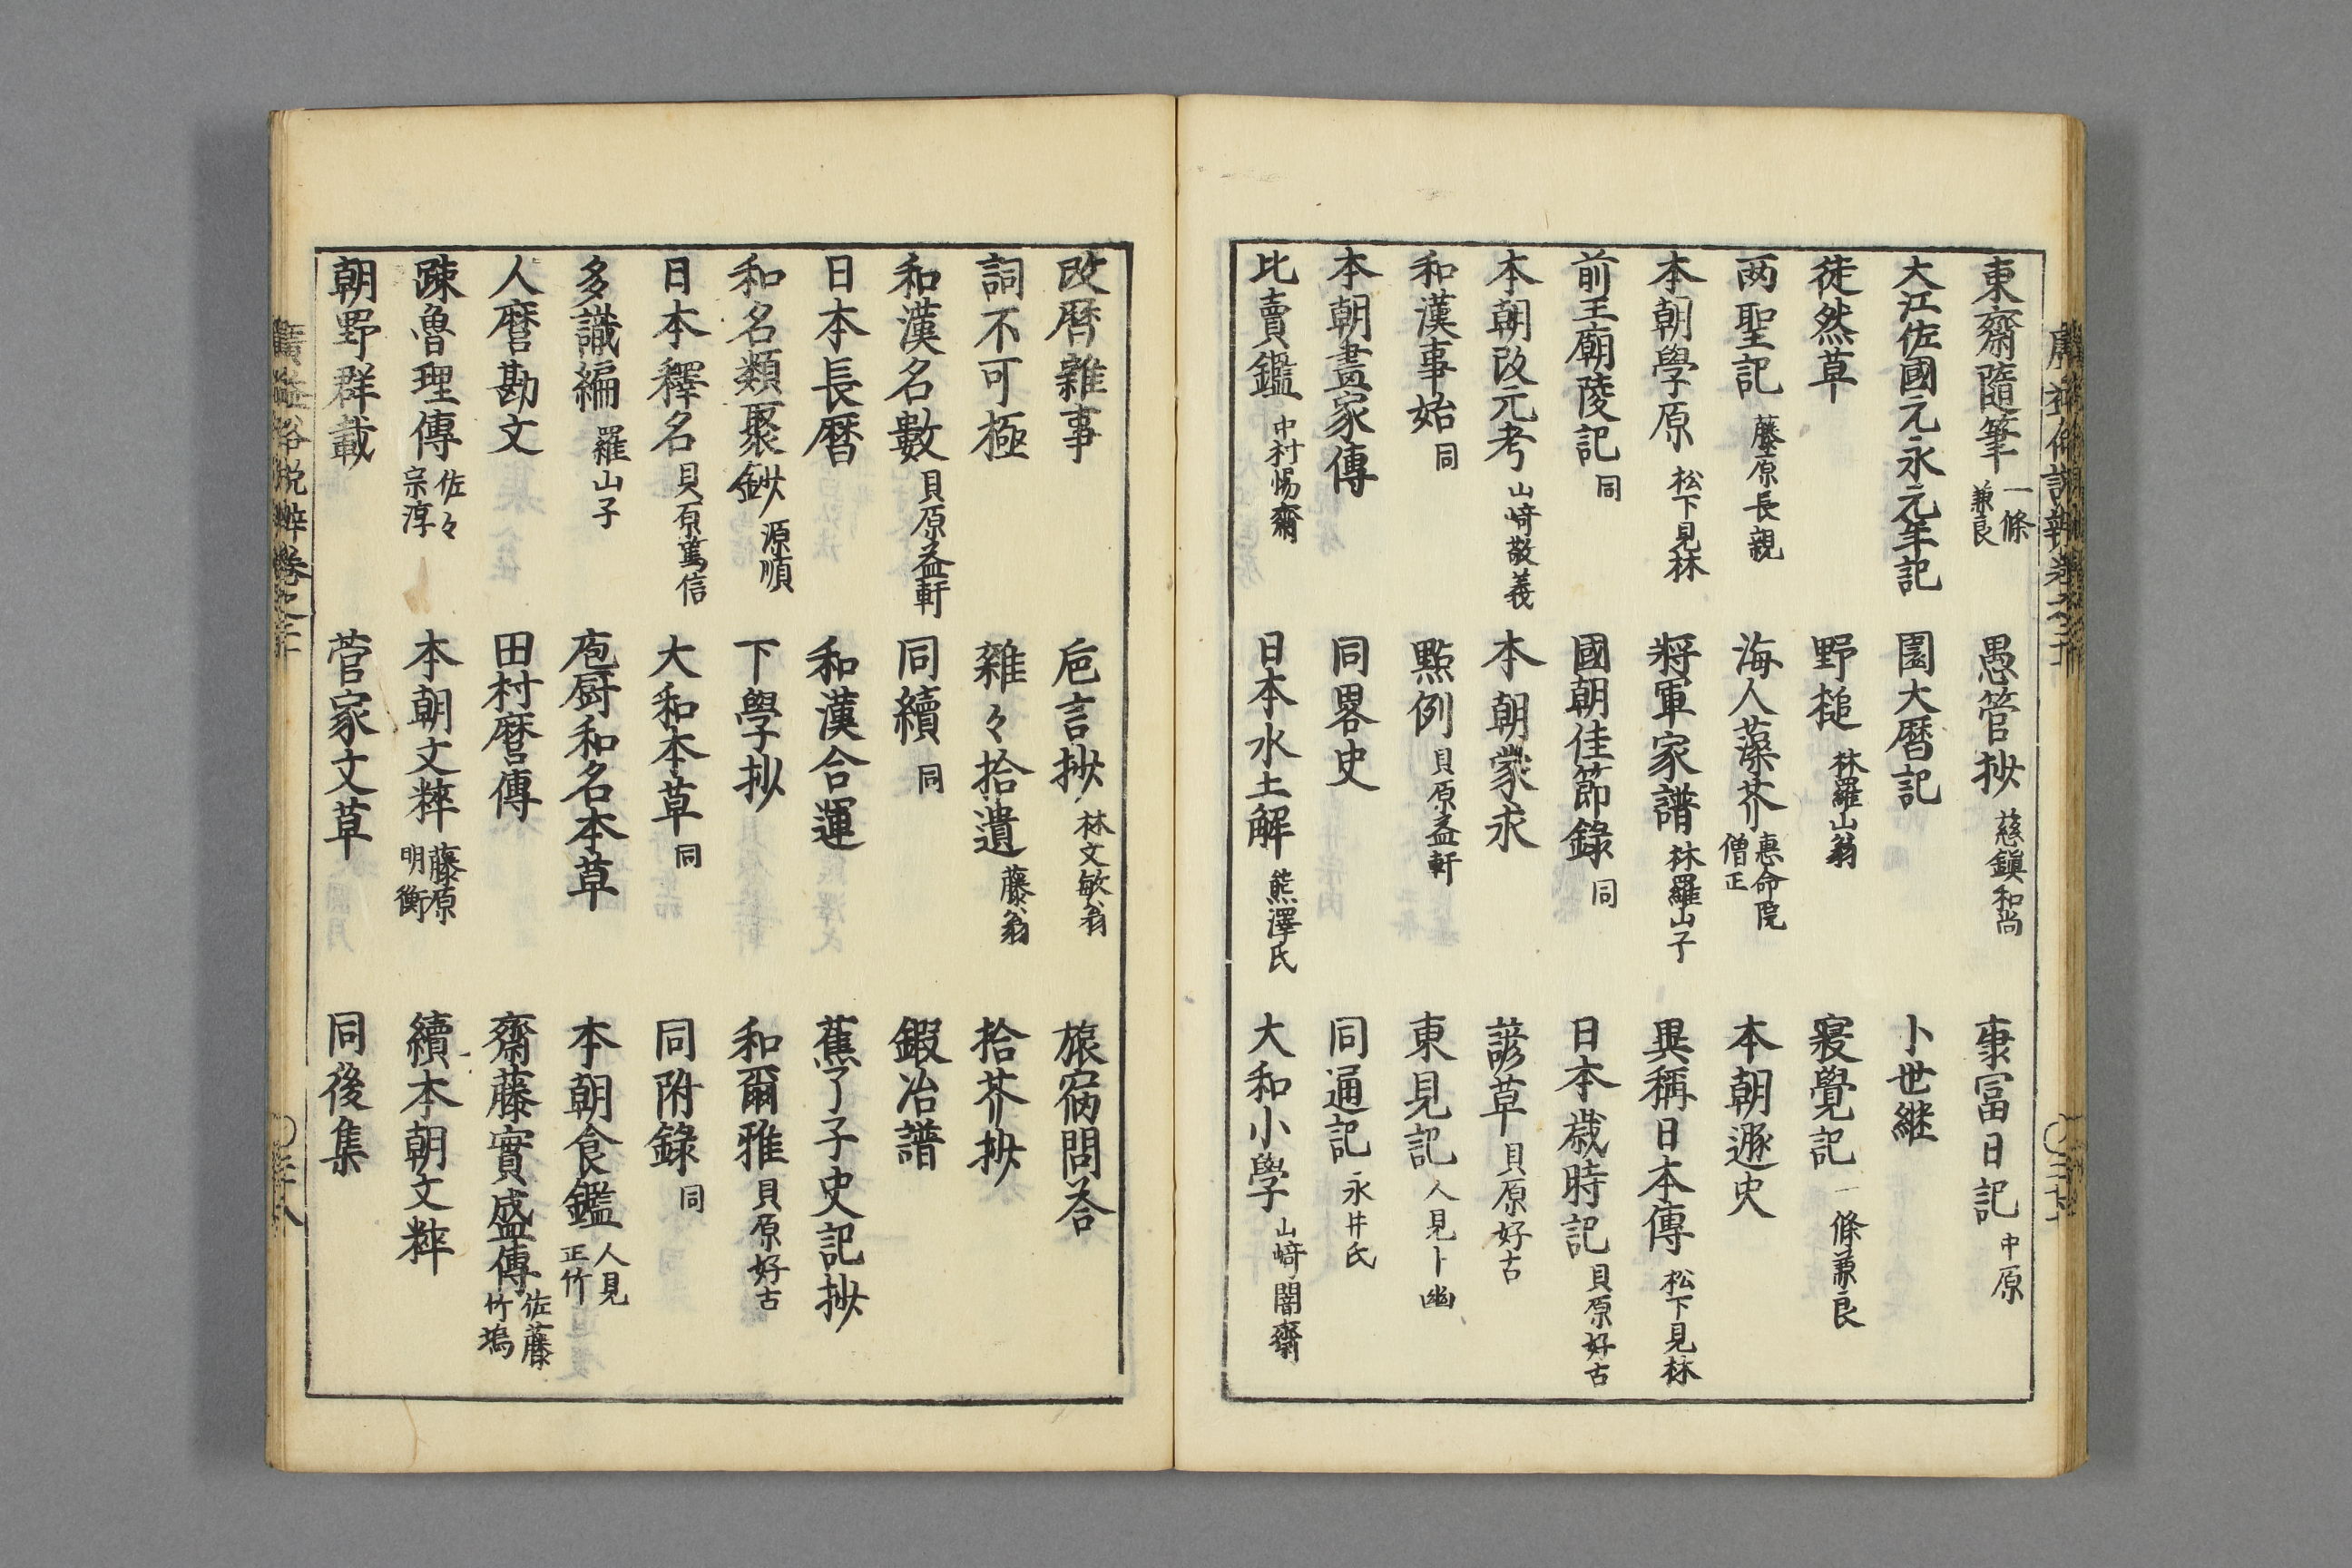 東齋隨筆 一條兼良 愚管抄 慈鎭和尚 康冨日記 中原
大江佐國元永元年記 園大暦記 卜世継
徒然草 野槌 林羅山翁 寝覺記 一條兼良
两聖記 藤原長親 海人藻芥 惠命院僧正 本朝遯史
本朝學原 松下見林 將軍家譜 林羅山子 異稱日本傳 松下見林
前王廟陵記 同 國朝佳節錄 同 日本歳時記 貝原好古
本朝改元考 山﨑敬義 本朝蒙求 諺草 貝原好古
和漢事始 同 點例 貝原益軒 東見記 人見卜幽
本朝畫家傳 同畧史 同通記 永井氏
比賣鑑 中村惕齋 日本水土解 熊澤氏 大和小學 山﨑闇齋
改暦雜事 巵言抄 林文敏翁 旅宿問荅
詞不可極 雜々拾遺 藤翁 拾芥抄
和漢名數 貝原益軒 同續 同 鍜冶譜
日本長暦 和漢合運 蕉了子史記抄
和名類聚鈔 源順 下學抄 和爾雅 貝原好古
日本釋名 貝原篤信 大和本草 同 同附錄 同
多識編 羅山子 庖厨和名本草 本朝食鑑 人見正竹
人麿勘文 田村麿傳 齋藤實盛傳 佐藤竹塢
踈魯理傳 佐々宗淳 本朝文粹 藤原明衡 續本朝文粹
朝野群載 菅家文草 同後集